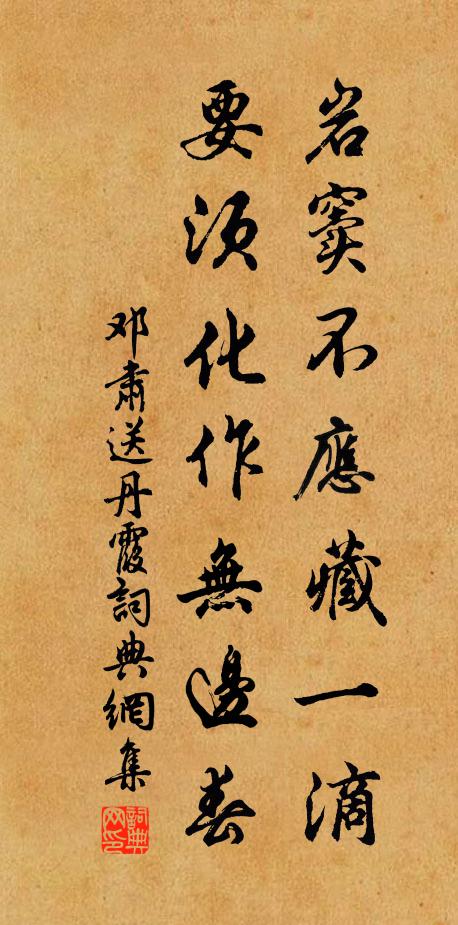 岩竇不應藏一滴
要須化作無邊春
邓肅送丹霞詞典網集
詞典網印